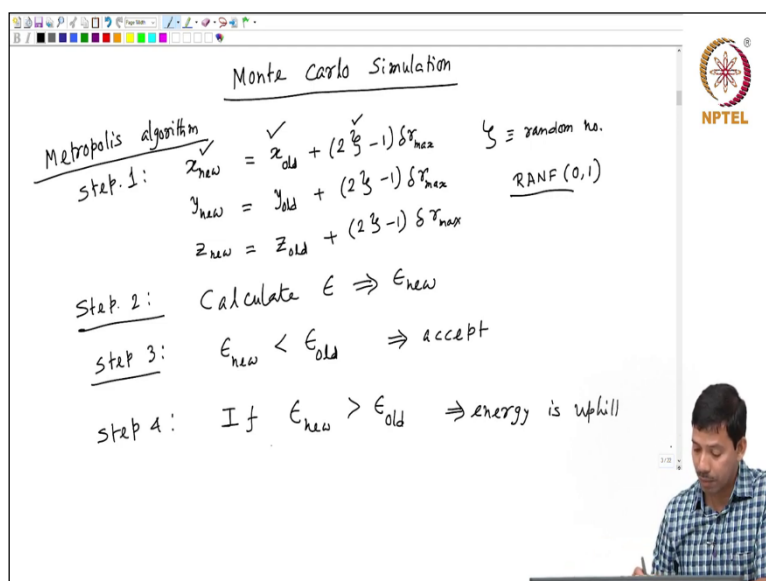 Page Width
B I
Monte Carlo Simulation
®
NPTEL
Metropolis algorithm
Step.1: x_new = x_old + (2ξ-1) δr_max ξ ≡ random no.
y_new = y_old + (2ξ-1) δr_max RANF (0,1)
z_new = z_old + (2ξ-1) δr_max
Step.2: Calculate ϵ ⇒ ϵ_new
step 3: ϵ_new < ϵ_old ⇒ accept
step 4: If ϵ_new > ϵ_old ⇒ energy is uphill